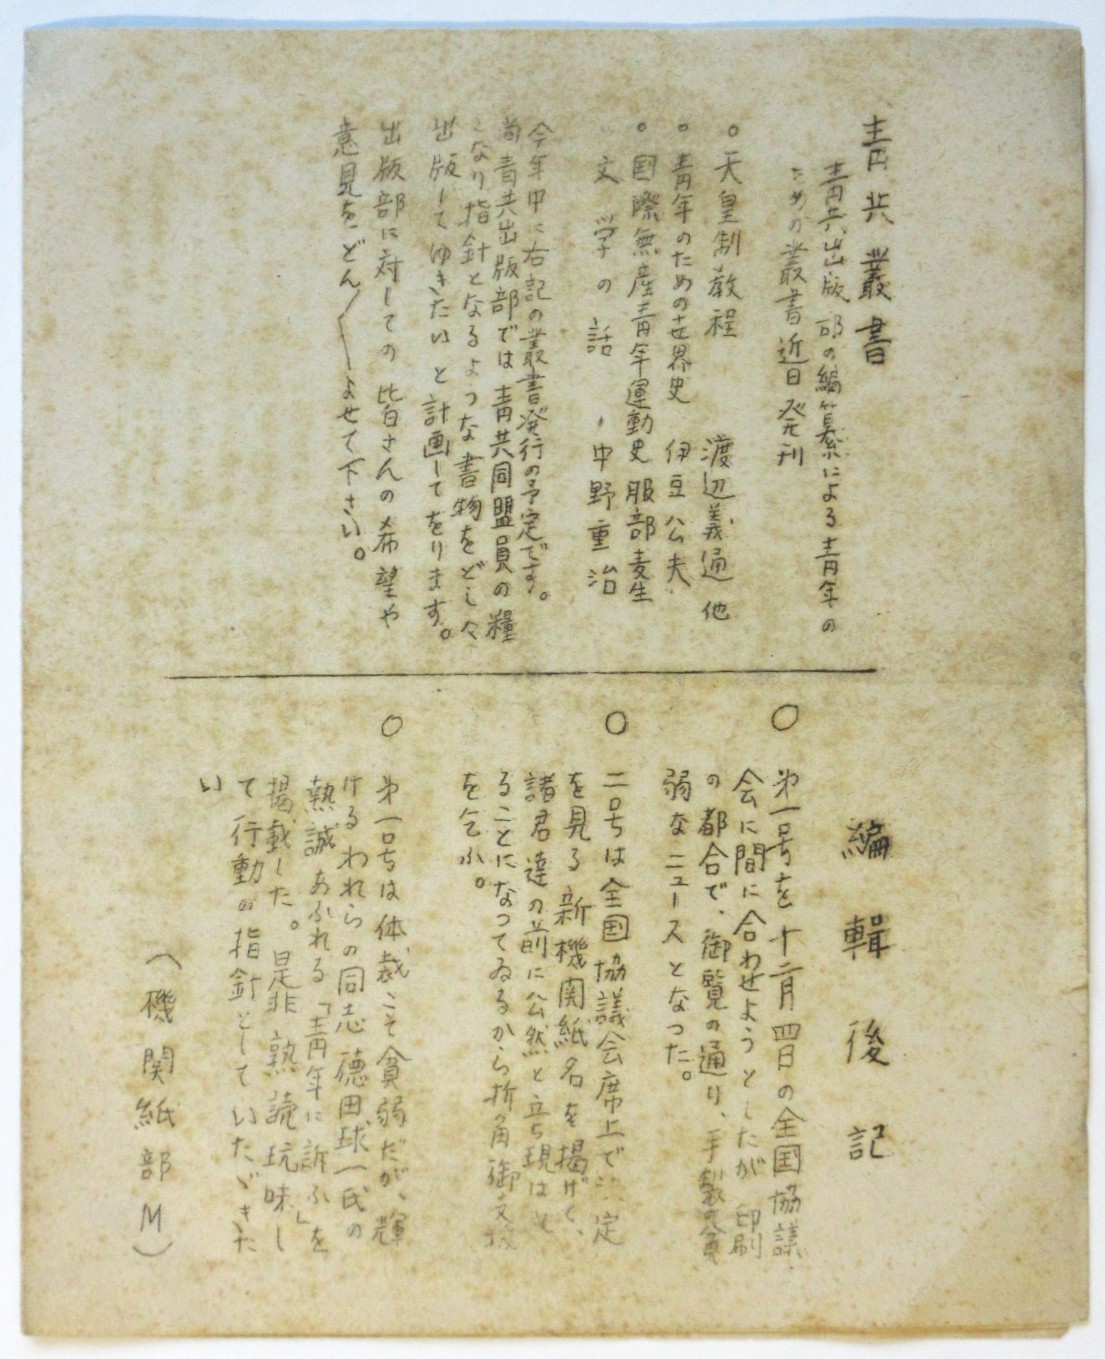 青共叢書
青共出版部の編纂による青年の
ための叢書近日発刊
○天皇制教程　渡辺義通 他
○青年のための世界史　伊豆公夫
○国際無産青年運動史 服部麦生
文学の話　中野重治
今年中に右記の叢書発行の予定です。
尚青共出版部では青共同盟員の糧
となり指針となるような書物をどし々
出版してゆきたいと計画してをります。
出版部に対しての皆さんの希望や
意見をどん〳〵よせて下さい。
編輯後記
○ 第一号を十二月四日の全国協議
会に間に合わせようとしたが 印刷
の都合で、御覧の通り、手製の貧
弱なニュースとなつた。
○ 二号は全国協議会席上で決定
を見る新機関紙名を掲げて、
諸君達の前に公然と立ち現はれ
ることになつてゐるから折角御支援
を乞ふ。
○ 第一号は体裁こそ貧弱だが、輝
けるわれらの同志徳田球一氏の
熱誠あふれる「青年に訴ふ」を
掲載した。是非 熟読玩味し
て行動の指針としていたゞきた
い
（機関紙部M）